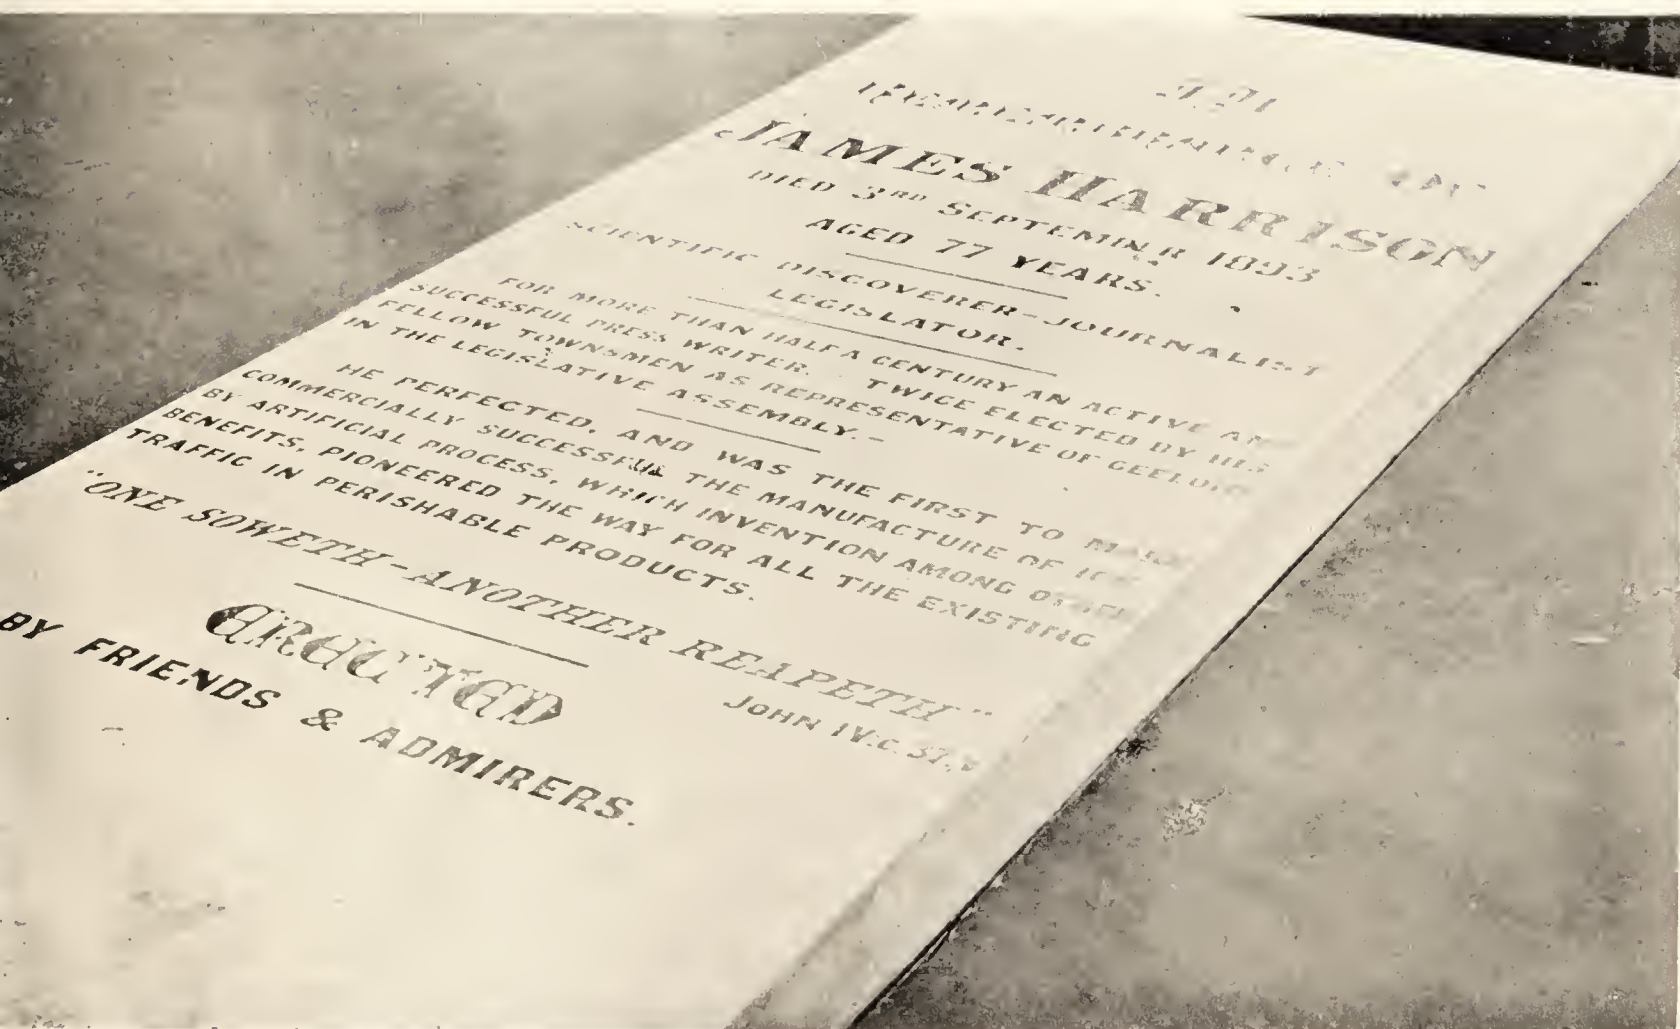 IN
REMEMBRANCE OF
JAMES HARRISON
DIED 3RD SEPTEMBER 1893
AGED 77 YEARS.
SCIENTIFIC DISCOVERER-JOURNALIST
LEGISLATOR.
FOR MORE THAN HALF A CENTURY AN ACTIVE AND
SUCCESSFUL PRESS WRITER. TWICE ELECTED BY HIS
FELLOW TOWNSMEN AS REPRESENTATIVE OF GEELONG
IN THE LEGISLATIVE ASSEMBLY.-
HE PERFECTED, AND WAS THE FIRST TO MAKE
COMMERCIALLY SUCCESSFUL THE MANUFACTURE OF ICE
BY ARTIFICIAL PROCESS, WHICH INVENTION AMONG OTHER
BENEFITS, PIONEERED THE WAY FOR ALL THE EXISTING
TRAFFIC IN PERISHABLE PRODUCTS.
"ONE SOWETH-ANOTHER REAPETH"
JOHN IV.C. 37.V
ERECTED
BY FRIENDS & ADMIRERS.